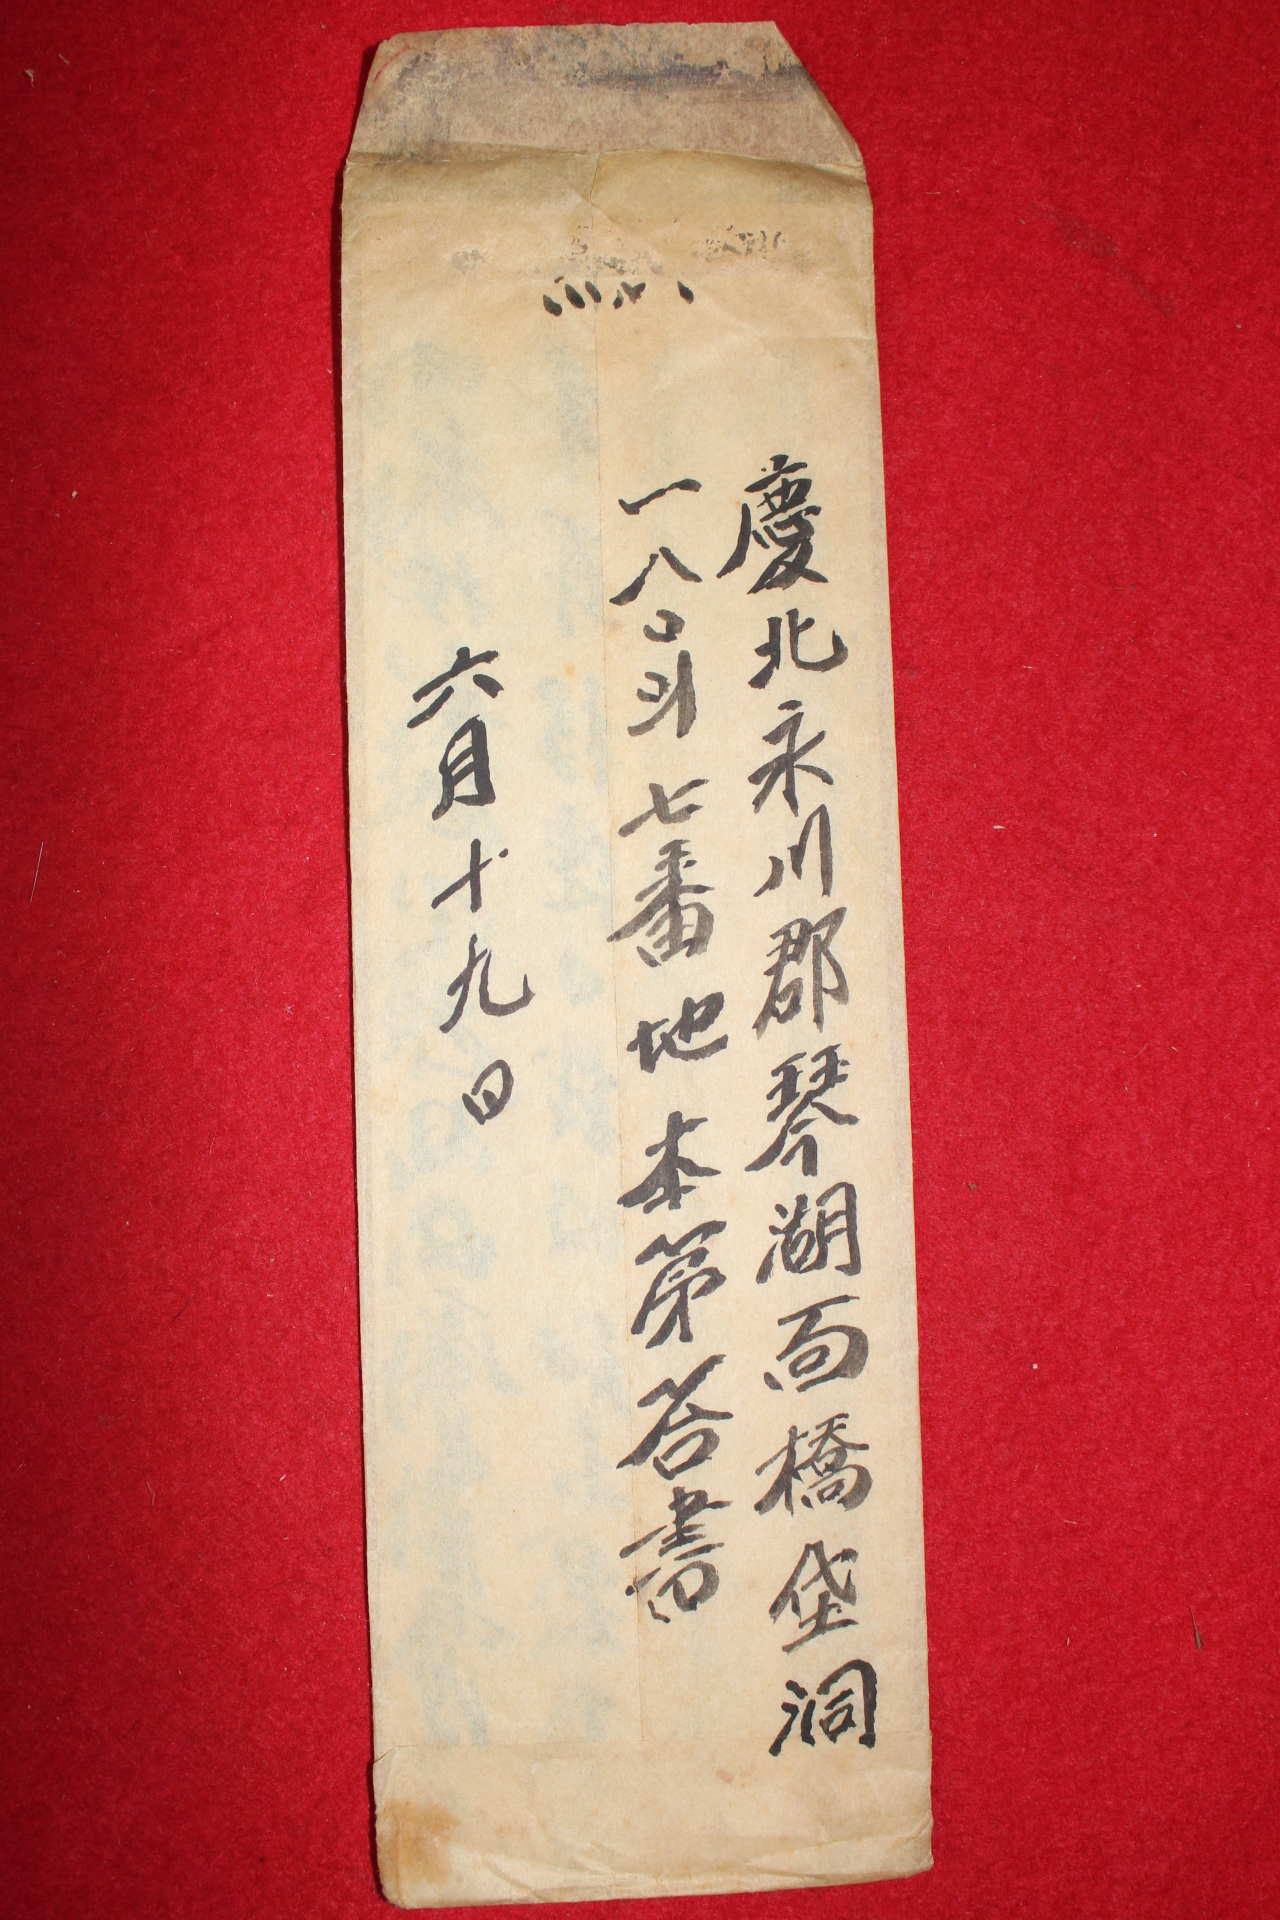 慶北永川郡琴湖面橋垈洞
一八〇斗七番地 本第答書
六月十九日